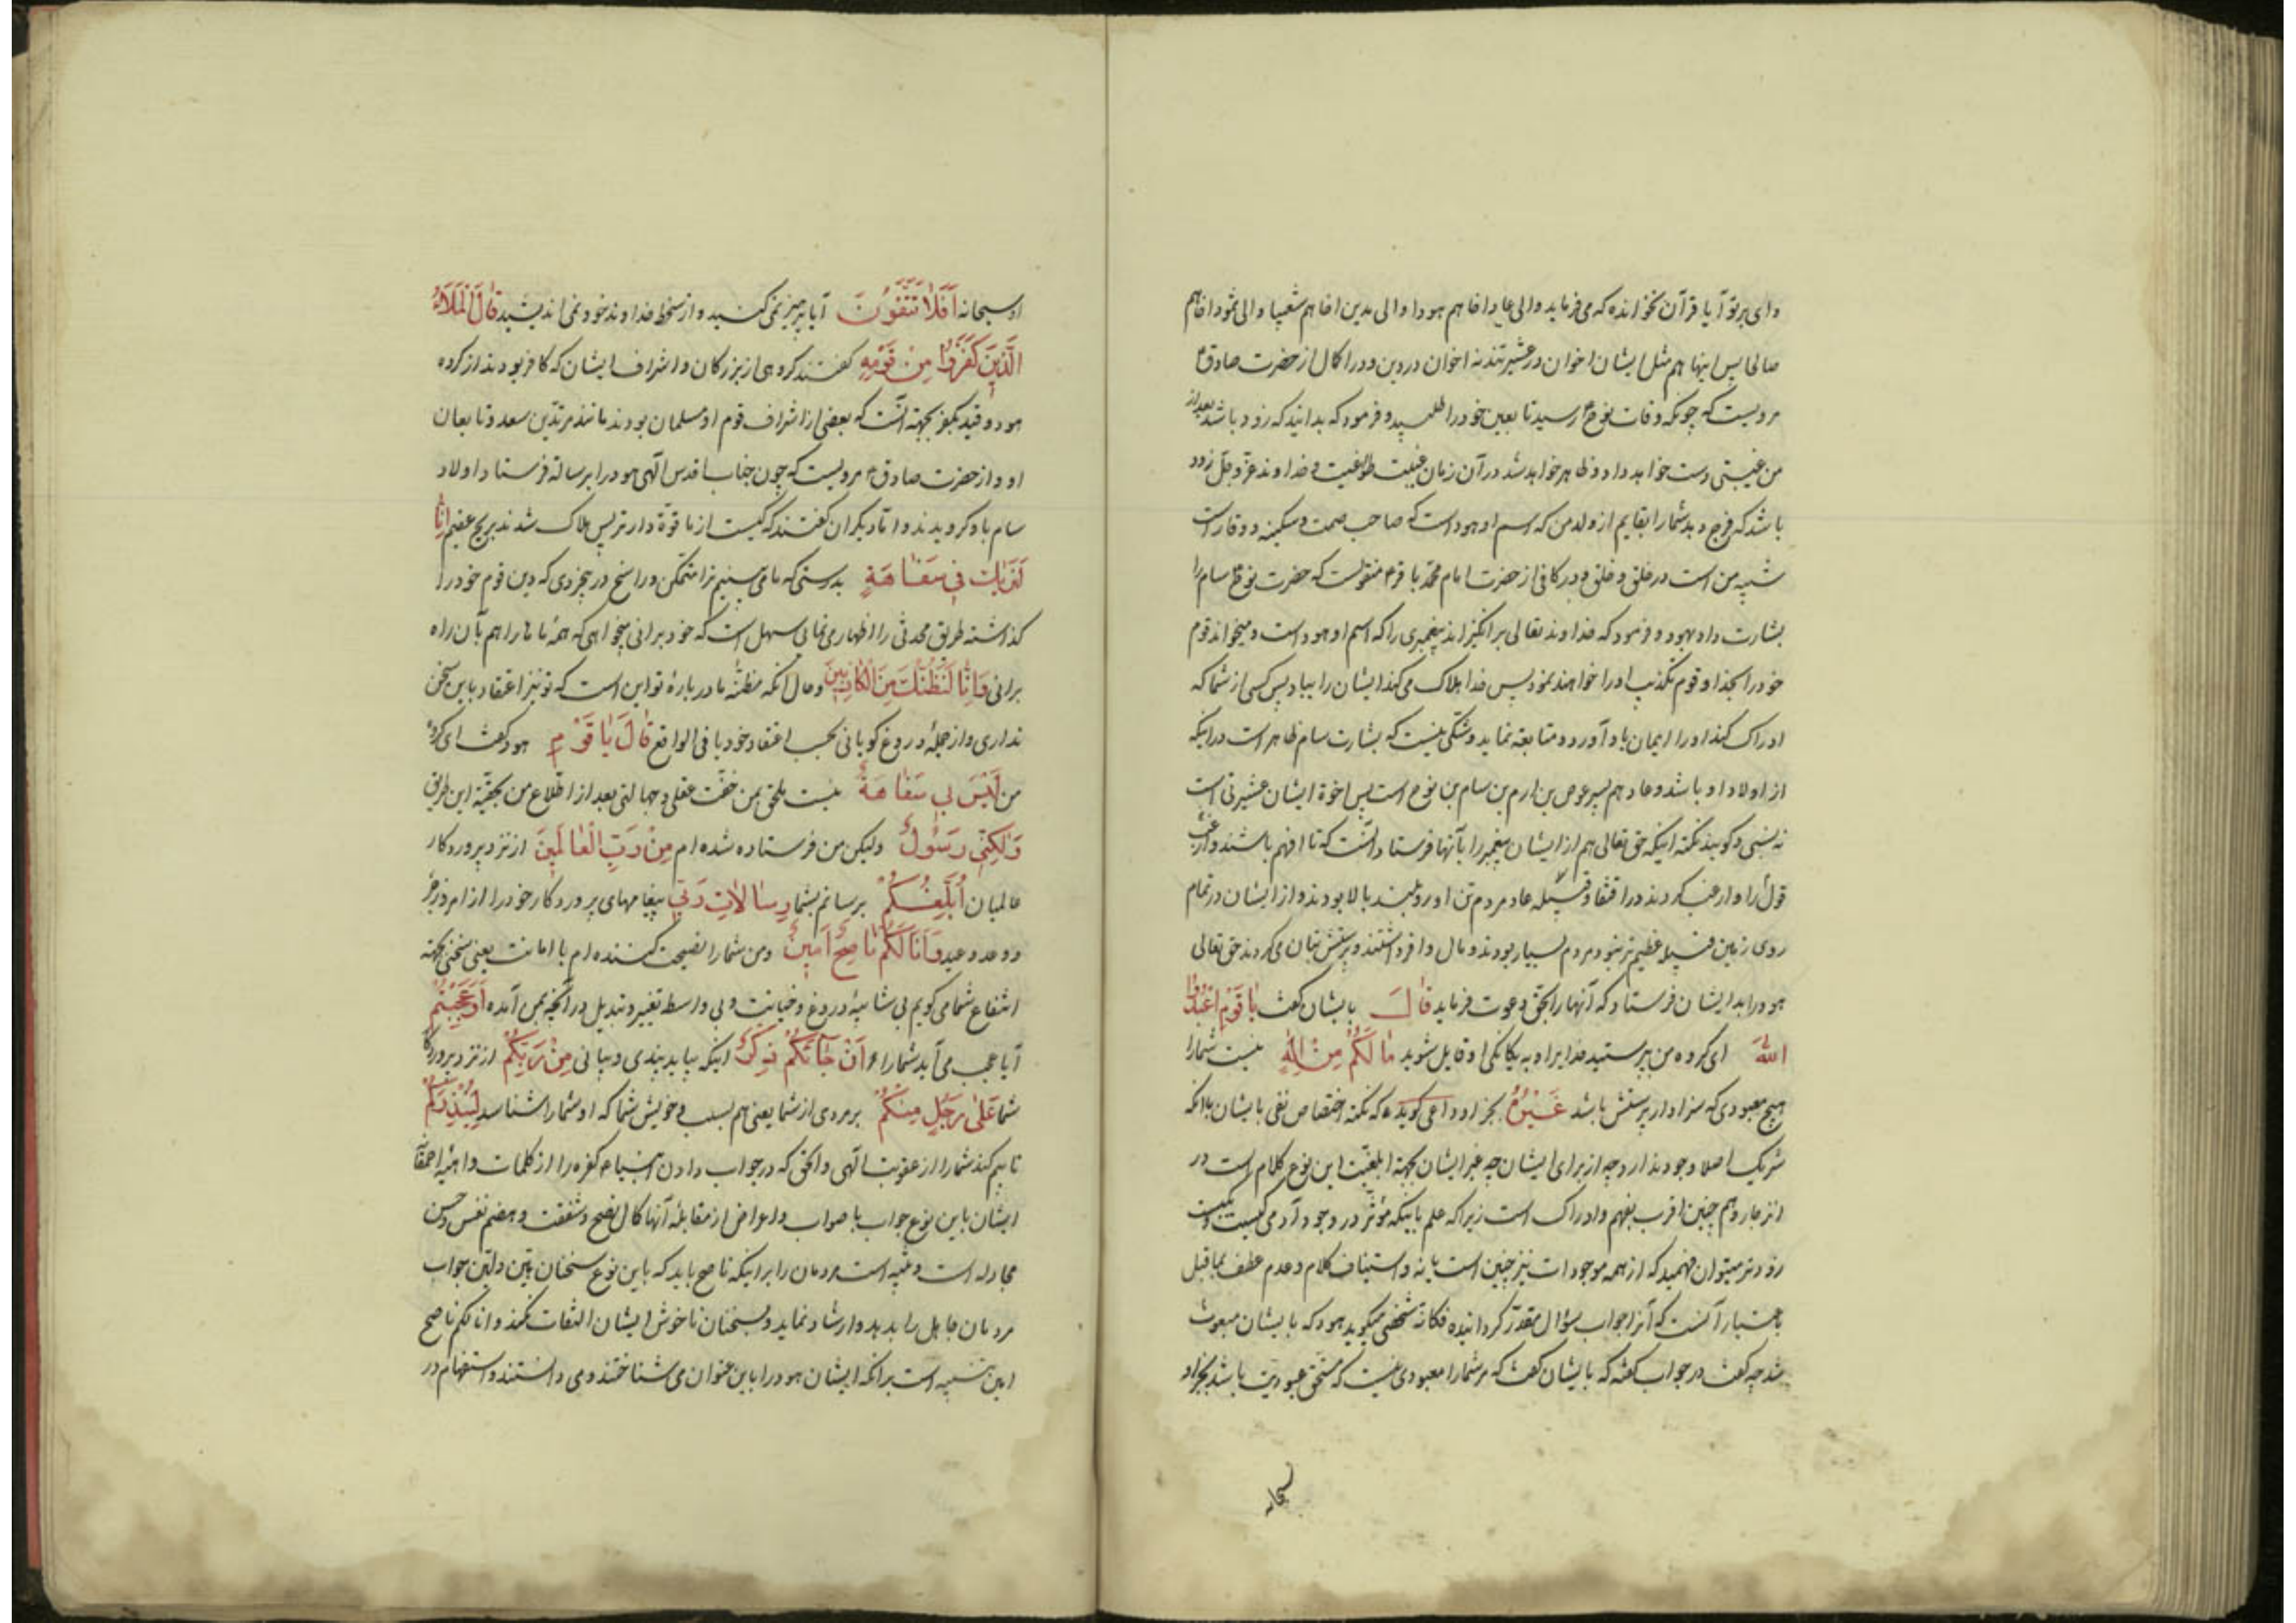 وای بر تو آیا قرآن نخوانده که می فرماید والی عاد اخاهم هودا والی مدین اخاهم شعیبا والی ثمود اخاهم
صالحا پس اینها هم مثل ایشان اخوان در عشیرتند نه اخوان در دین و در اکمال از حضرت صادق ع
مرویست که چونکه وفات نوح ع رسید تابعین خود را طلبید و فرمود که بدانید که زود باشد بعد از
من غیبتی دست خواهد داد و ظاهر خواهد شد در آن زمان غیبت طواغیت و خداوند عز و جل زود
باشد که فرج دهد شما را بقایم از ولد من که اسم او هود است که صاحب سمت و سکینه و وقار است
شبیه من است در خلق و خلق و در کافی از حضرت امام محمد باقر ع منقولست که حضرت نوح ع سام را
بشارت داد بهود و فرمود که خداوند تعالی برانگیزاند پیغمبری را که اسم او هود است و میخواند قوم
خود را بخدا و قوم تکذیب او را خواهند نمود پس خدا هلاک می کند ایشان را بباد پس کسی از شما که
ادراک کند او را ایمان باو آورد و متابعه نماید و شکی نیست که بشارت سام ظاهر است در اینکه
از اولاد او باشد و عاد هم پسر عوص بن ارم بن سام بن نوح است پس اخوة ایشان عشیرتی است
نه نسبی و گویند نکته اینکه حق تعالی هم از ایشان پیغمبر را بآنها فرستاد آنست که تا افهم باشند و ارغب
قول را و ارغب کردند در اقتفا و قبیله عاد مردم تن آور و بلند بالا بودند و از ایشان در تمام
روی زمین قبیله عظیم تر نبود و مردم بسیار بودند و مال وافر داشتند و پرستش بتان می کردند حق تعالی
هود را بدایشان فرستاد که آنها را بحق دعوت فرماید قَالَ بایشان گفت يَا قَوْمِ اعْبُدُوا
اللهَ ای گروه من بپرستید خدا برا و به یگانگی او قایل شوید مَا لَكُمْ مِنْ إِلَهٍ نیست شما را
هیچ معبودی که سزاوار پرستش باشد غَيْرُهُ بجز او و داعی گوید که نکته اختصاص نفی بایشان باآنکه
شریک اصلا وجود ندارد چه از برای ایشان چه غیر ایشان بجهة ابلغیت این نوع کلام است در
انزجار و هم چنین اقرب بفهم و ادراک است زیرا که علم باینکه مؤثر در وجود آدمی کیست
زودتر میتوان فهمید که از همه موجودات نیز چنین است یا نه و استیناف کلام و عدم عطف بما قبل
باعتبار آنست که آنرا جواب سؤال مقدر گردانیده فکانه شخصی میگوید هود که بایشان مبعوث
شد چه گفت در جواب گفته که بایشان گفت که مر شما را معبودی نیست که مستحق عبودیت باشد بجز او
سبحانه
او سبحانه أَفَلَا تَتَّقُونَ آیا پرهیز نمی کنید و از سخط خداوند خود نمی اندیشید قَالَ الْمَلَأُ
الَّذِينَ كَفَرُوا مِنْ قَوْمِهِ گفتند گروهی از بزرگان و اشراف ایشان که کافر بودند از گروه
هود و قید بکفر بجهة آنست که بعضی از اشراف قوم او مسلمان بودند مانند مرثد بن سعد و تابعان
او و از حضرت صادق ع مرویست که چون جناب اقدس الهی هود را برسالة فرستاد اولاد
سام باو گرویدند و اما دیگران گفتند که کیست از ما قوة دارتر پس هلاک شدند بریح عقیم إِنَّا
لَنَرَاكَ فِي سَفَاهَةٍ بدرستی که ما می بینیم ترا متمکن و راسخ در بیخردی که دین قوم خود را
گذاشته طریق محدثی را اظهار می نمائی سهل است که خود برانی میخواهی که همه ماها را هم بآن راه
برانی وَإِنَّا لَنَظُنُّكَ مِنَ الْكَاذِبِينَ و حال آنکه مظنه ما در باره تو این است که تو نیز اعتقاد باین سخن
نداری و از جمله دروغ گویانی بحسب اعتقاد خود یا فی الواقع قَالَ يَا قَوْمِ هود گفت ای گروه
من لَيْسَ بِي سَفَاهَةٌ نیست ملحق بمن خفت عقلی و جهالتی بعد از اطلاع من بحقیة این طریق
وَلَكِنِّي رَسُولٌ ولیکن من فرستاده شده ام مِنْ رَبِّ الْعَالَمِينَ از نزد پروردگار
عالمیان أُبَلِّغُكُمْ برسانم بشما رِسَالَاتِ رَبِّي پیغامهای پروردگار خود را از امر و زجر
و وعد و وعید وَأَنَا لَكُمْ نَاصِحٌ أَمِينٌ و من شما را نصیحت کننده ام با امانت یعنی سخنی بجهة
انتفاع شما می گویم بی شایبه دروغ و خیانت و بی واسطه تغییر و تبدیل در آنچه بمن آمده أَوَعَجِبْتُمْ
آیا عجب می آید شما را أَنْ جَاءَكُمْ ذِكْرٌ اینکه بیاید پندی و بیانی مِنْ رَبِّكُمْ از نزد پروردگار
شما عَلَى رَجُلٍ مِنْكُمْ بر مردی از شما یعنی هم نسب و خویش شما که او شما را شناسد لِيُنْذِرَكُمْ
تا بیم کند شما را از عقوبت الهی و الحق که در جواب دادن انبیاء کفره را از کلمات واهیه احمقانه
ایشان باین نوع جواب با صواب و اعراض از مقابله آنها کمال نصح و شفقت و هضم نفس و حسن
مجادله است و تنبیه است مردمان را بر اینکه ناصح باید که باین نوع سخنان متین و لین جواب
مردمان جاهل را بدهد و ارشاد نماید و بسخنان ناخوش ایشان التفات نکند و انا لکم ناصح
امین تنبیه است بر آنکه ایشان هود را باین عنوان می شناختند و می دانستند و استفهام در